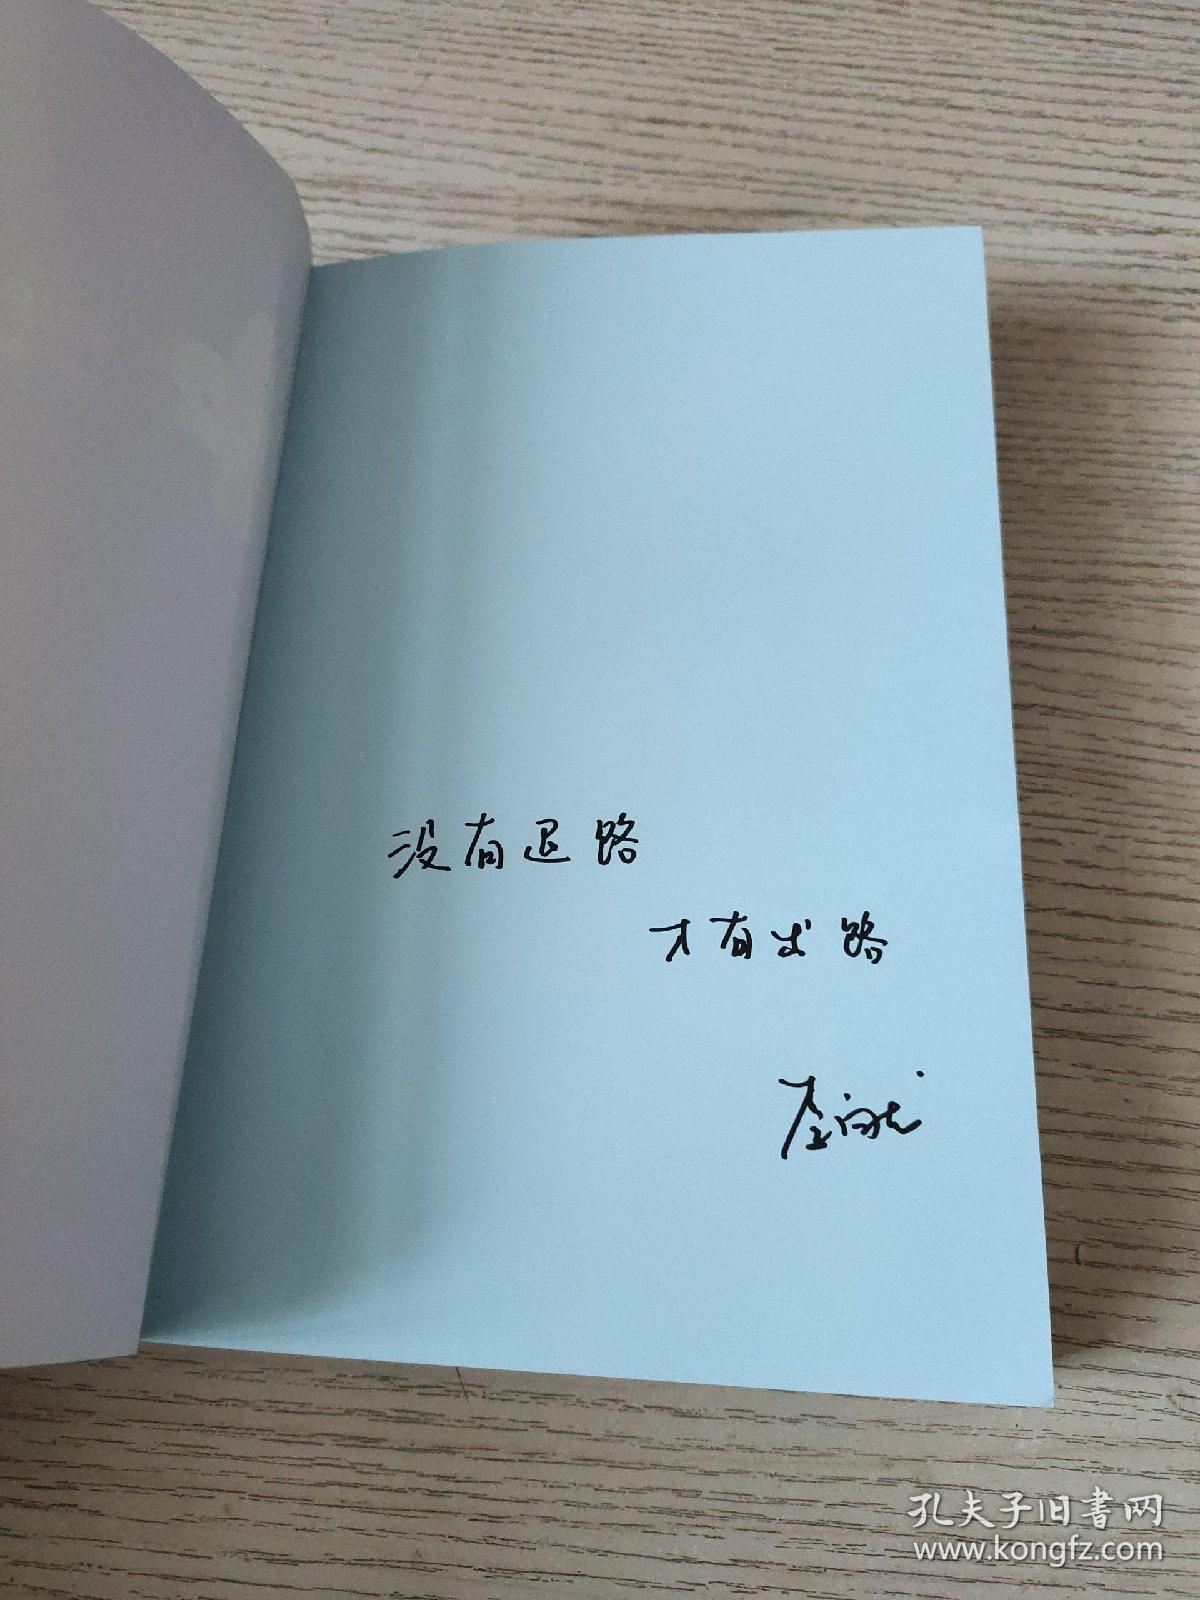 没有退路
才有出路
孔夫子旧书网
www.kongfz.com